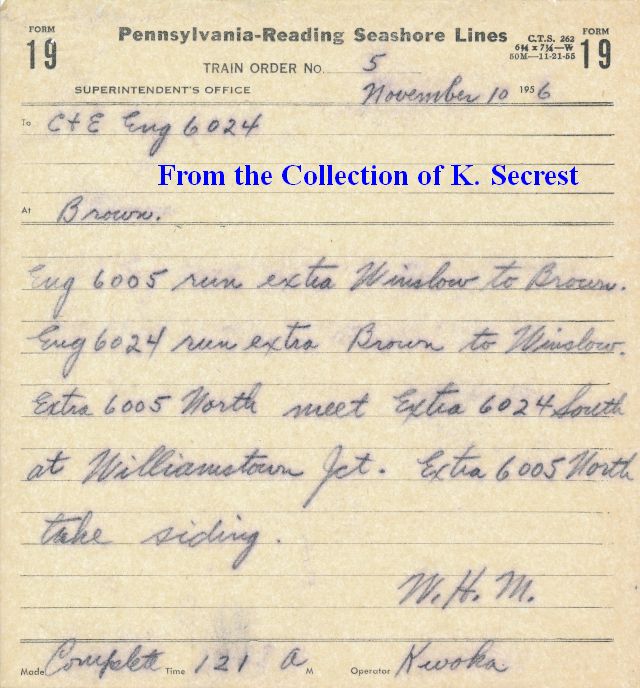 FORM 19
Pennsylvania-Reading Seashore Lines
C.T.S. 262
6¾ x 7¼—W
50M—11-21-55
FORM 19
TRAIN ORDER No. 5
SUPERINTENDENT'S OFFICE
November 10 1956
To C+E Eng 6024
From the Collection of K. Secrest
At Brown.
Eng 6005 run extra Winslow to Brown.
Eng 6024 run extra Brown to Winslow.
Extra 6005 North meet Extra 6024 South
at Williamstown Jct. Extra 6005 North
take siding.
W. H. M.
Made Complete Time 121 A M Operator Kwoka